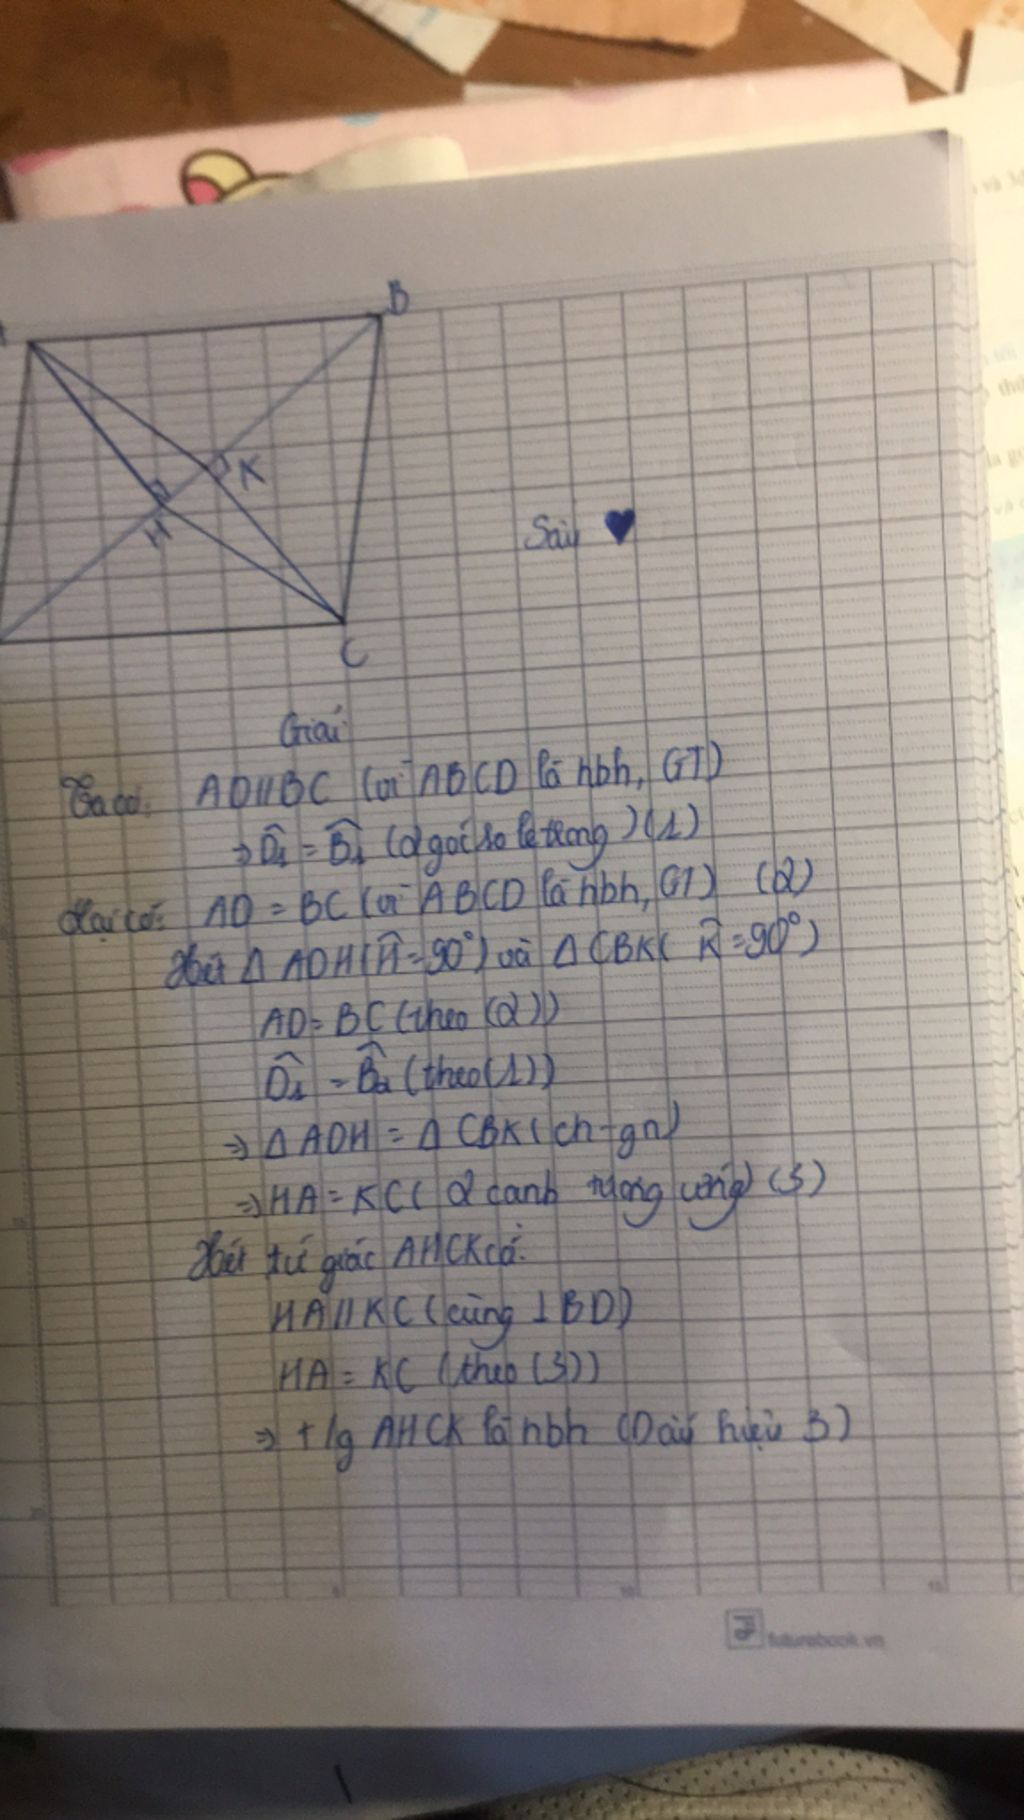 B
K
H
Sai ♥
C
Giải
Ta có: AD//BC (vì ABCD là hbh, GT)
⇒ D̂₁ = B̂₁ (2 góc so le trong) (1)
Lại có: AD = BC (vì ABCD là hbh, GT) (2)
Xét Δ ADH (Ĥ = 90°) và Δ CBK ( K̂ = 90°)
AD = BC (theo (2))
D̂₁ = B̂₂ (theo (1))
⇒ Δ ADH = Δ CBK (ch-gn)
⇒ HA = KC ( 2 cạnh tương ứng) (3)
Xét tứ giác AHCK có:
HA // KC (cùng ⊥ BD)
HA = KC (theo (3))
⇒ t/g AHCK là hbh (Dấu hiệu 3)
futurebook.vn